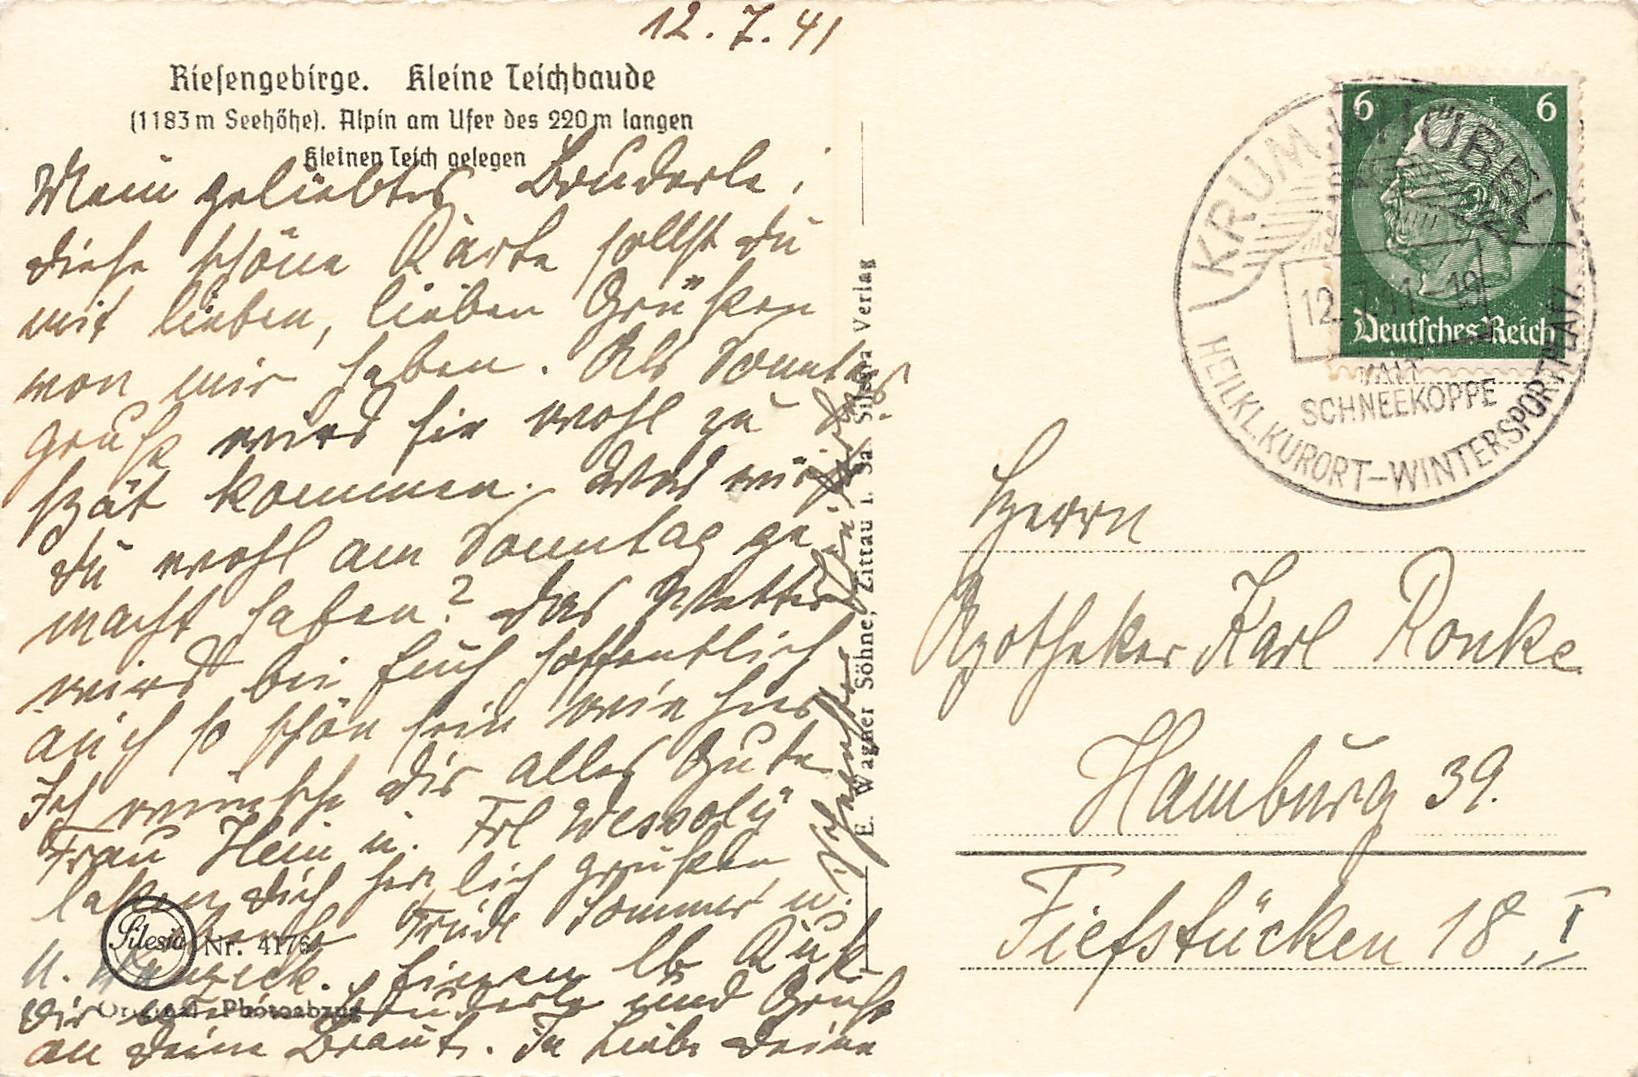 12.7.41
Riesengebirge. Kleine Teichbaude
(1183 m Seehöhe). Alpin am Ufer des 220 m langen
Kleinen Teich gelegen
Mein geliebtes Bruderle;
diese schöne Karte sollst du
mit lieben, lieben Grüßen
von mir haben. Als Sonntags
gruß wird sie wohl zu
spät kommen. Was wirst
du wohl am Sonntag ge
macht haben? Das Wetter
wird bei Euch hoffentlich
auch so schön sein wie hier
Ich wünsche dir alles Gute
Frau Hein u. Frl Wessoly
laßen dich herzlich grüßen
Trude Sommer u.
u. Einen lb Kuß
dir Bruderle und Grüße
an deine Braut. In Liebe deine
Schwester
E. Wagner Söhne, Zittau i. Sa. Silesia Verlag
Silesia Nr. 4176
Original Photoabzug
6 6
Deutsches Reich
KRUMMHÜBEL
12.7.41-19
SCHNEEKOPPE
HEILKL.KURORT-WINTERSPORTPLATZ
Herrn
Apotheker Karl Ronke
Hamburg 39.
Fiefstücken 18, I